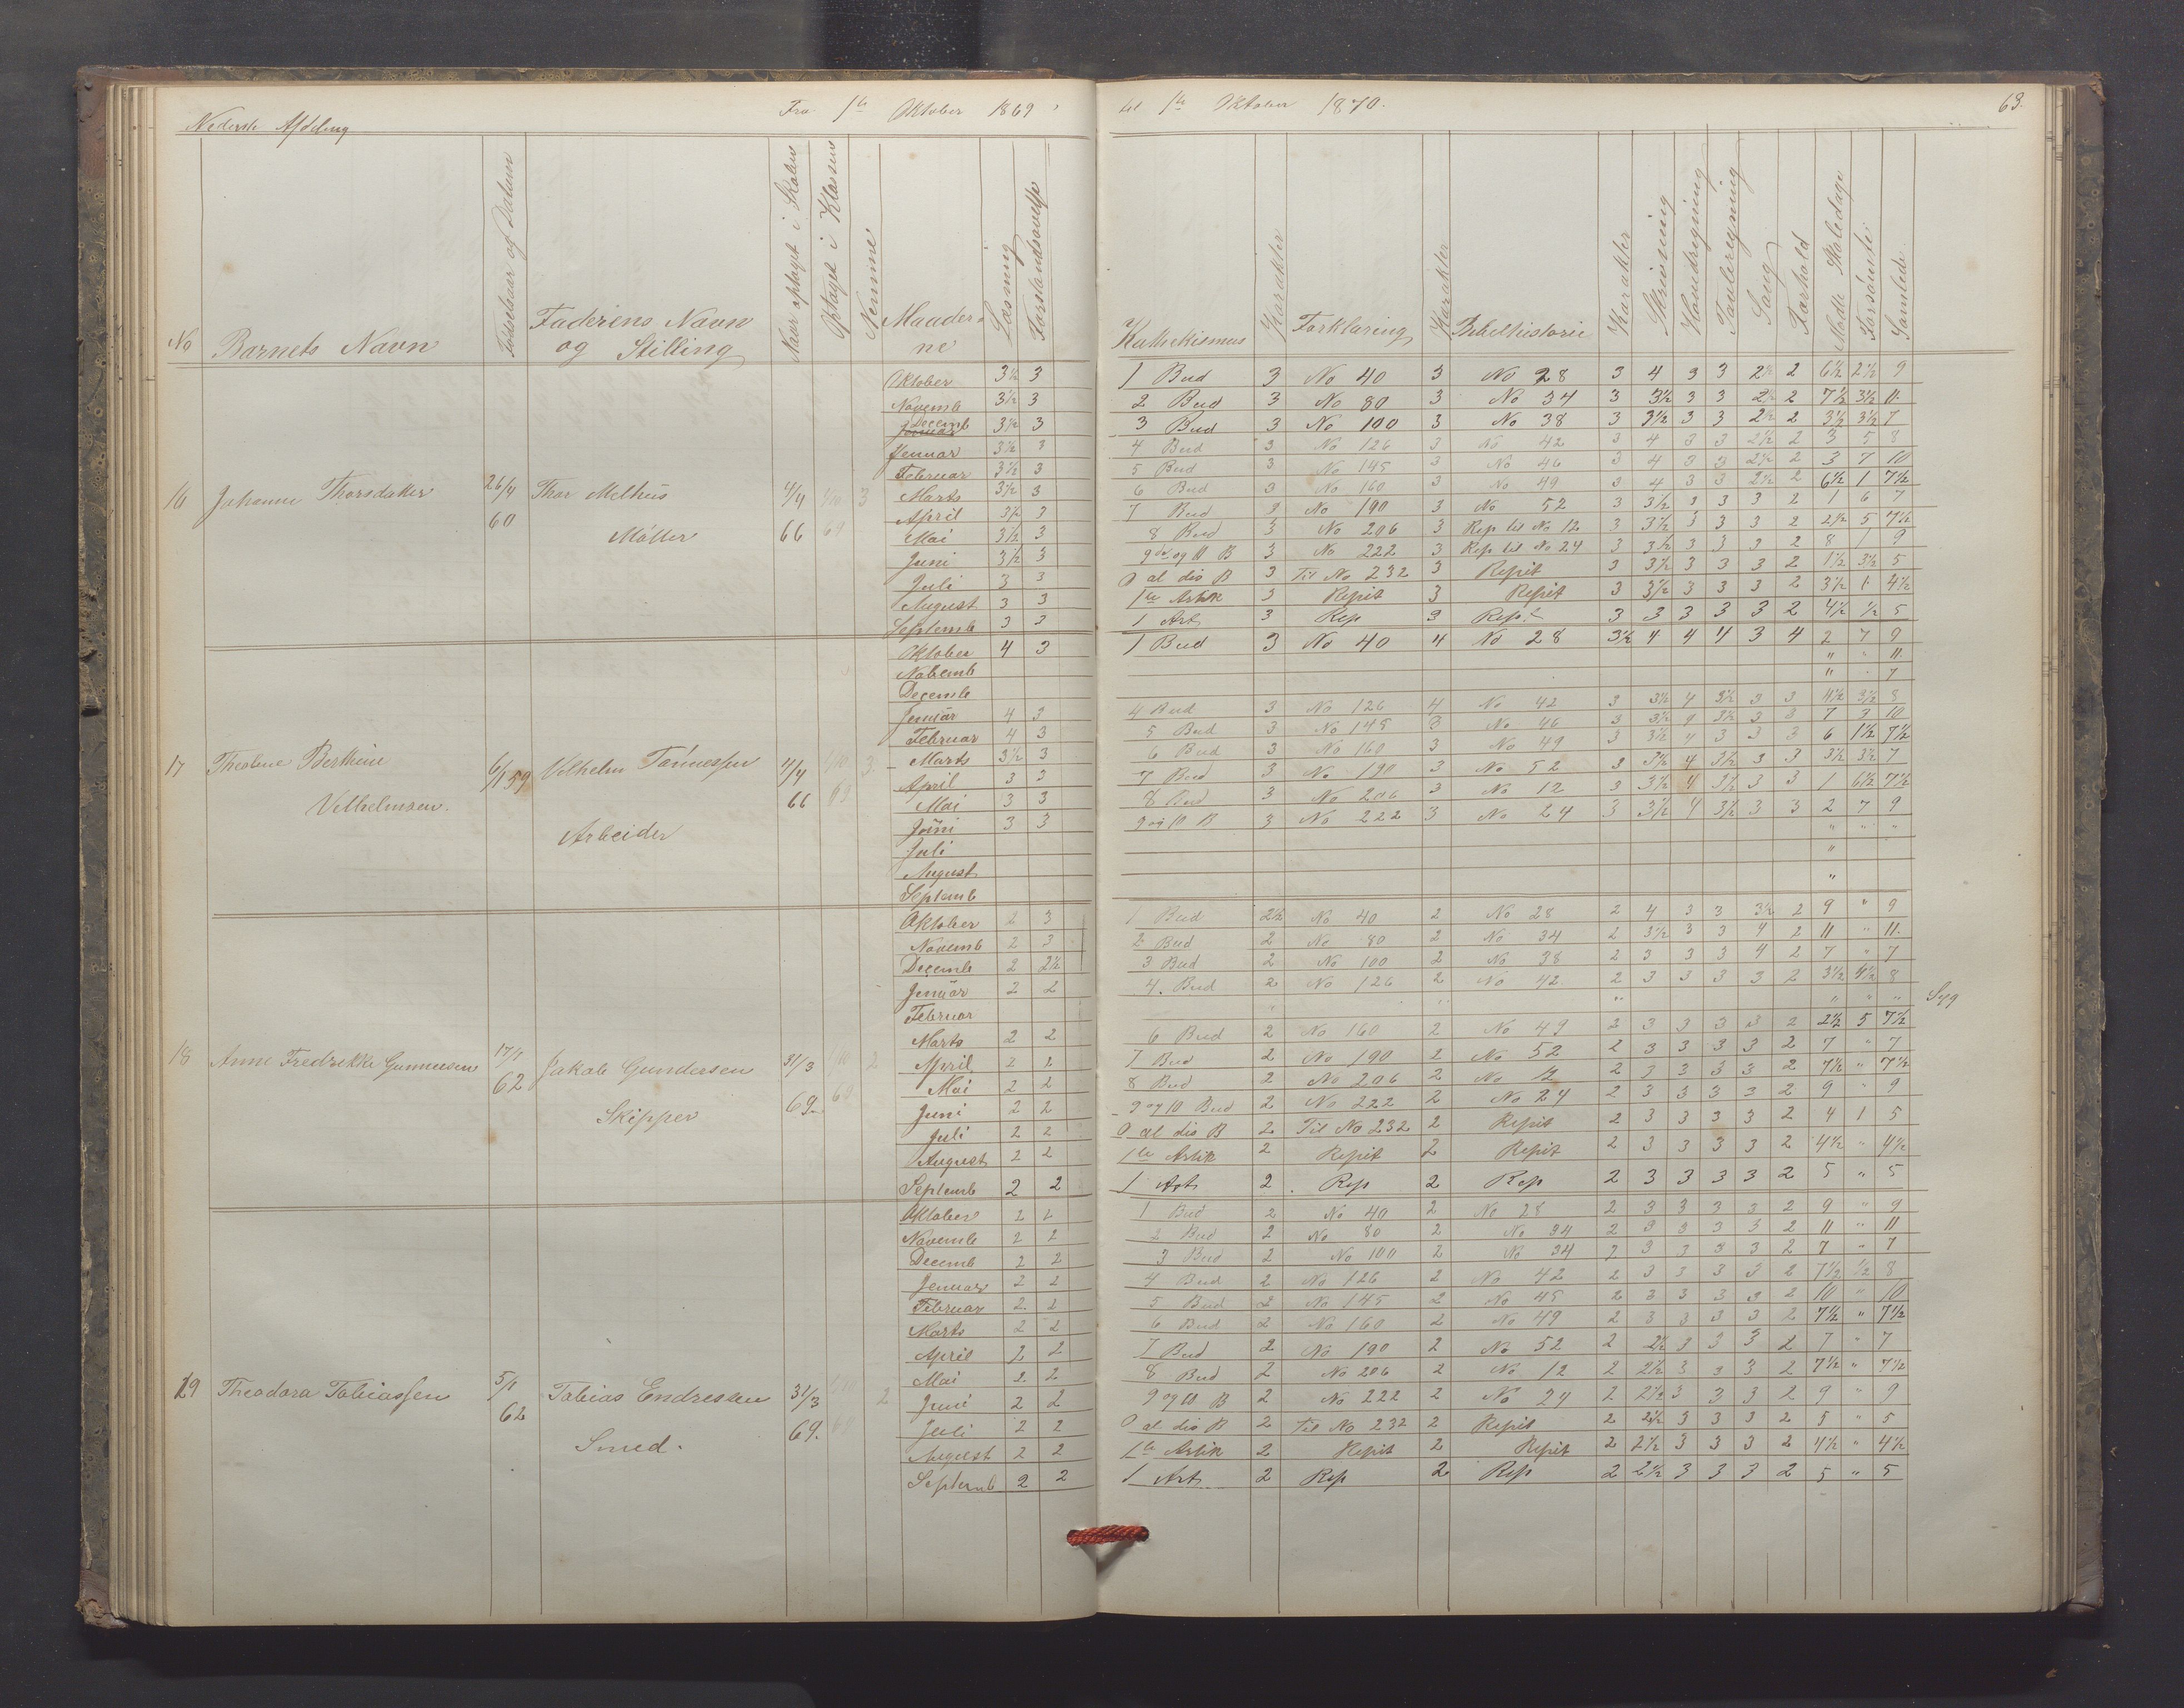 Nederste Afdeling
Fra 1te Oktober 1869
til 1te Oktober 1870.
63.
No
Barnets Navn
Fødselsaar og Datum
Faderens Navn og Stilling
Naar optaget i Skolen
Optaget i Klassen
Nemme
Maaderne
Læsning
Forstandsøvelse
Kathekismus
Karakter
Forklaring
Karakter
Bibelhistorie
Karakter
Skrivning
Hovedregning
Tavleregning
Sang
Forhold
Mødte Skoledage
Forsømte
Samlede
16 Johanne Thorsdatter 26/4 60 Thor Melhus Møller 4/4 66 1/10 69 3
Oktober 3½ 3 1 Bud 3 No 40 3 No 28 3 4 3 3 2½ 2 6½ 2½ 9
Novemb 3½ 3 2 Bud 3 No 80 3 No 34 3 3½ 3 3 2½ 2 7½ 3½ 11
Decemb 3½ 3 3 Bud 3 No 100 3 No 38 3 3½ 3 3 2½ 2 3½ 3½ 7
Januar 3½ 3 4 Bud 3 No 126 3 No 42 3 4 3 3 2½ 2 3 5 8
Februar 3½ 3 5 Bud 3 No 145 3 No 46 3 4 3 3 2½ 2 3 7 10
Marts 3½ 3 6 Bud 3 No 160 3 No 49 3 4 3 3 2½ 2 6½ 1 7½
April 3½ 3 7 Bud 3 No 190 3 No 52 3 3½ 3 3 3 2 1 6 7
Mai 3½ 3 8 Bud 3 No 206 3 Rep til No 12 3 3½ 3 3 3 2 2½ 5 7½
Juni 3½ 3 9de og 10 B 3 No 222 3 Rep til No 24 3 3½ 3 3 3 2 8 1 9
Juli 3 3 al dis B 3 Til No 232 3 Repit 3 3½ 3 3 3 2 1½ 3½ 5
August 3 3 1te Artik 3 Repit 3 Repit 3 3½ 3 3 3 2 3½ 1 4½
Septemb 3 3 1 Art 3 Rep 3 Rept 3 3 3 3 3 2 4½ ½ 5
17 Theoline Berthine Velhelmsen. 6/1 59 Velhelm Tønnessen Arbeider 4/4 66 1/10 69 3.
Oktober 4 3 1 Bud 3 No 40 4 No 28 3½ 4 4 4 3 4 2 7 9
Novemb " " 11.
Decemb " " 7
Januar 4 3 4 Bud 3 No 126 4 No 42 3 3½ 4 3½ 3 3 4½ 3½ 8
Februar 4 3 5 Bud 3 No 145 3 No 46 3 3½ 4 3½ 3 3 7 3 10
Marts 3½ 3 6 Bud 3 No 160 3 No 49 3 3½ 4 3 3 3 6 1½ 7½
April 3 3 7 Bud 3 No 190 3 No 52 3 3½ 4 3½ 3 3 3½ 3½ 7
Mai 3 3 8 Bud 3 No 206 3 No 12 3 3½ 4 3½ 3 3 1 6½ 7½
Juni 3 3 9 og 10 B 3 No 222 3 No 24 3 3½ 4 3½ 3 3 2 7 9
Juli " " "
August "
Septemb "
18 Anne Fredrikke Gunnersen 17/7 62 Jakob Gundersen Skipper 31/3 69. 1/10 69 2
Oktober 2 3 1 Bud 2½ No 40 2 No 28 2 4 3 3 3½ 2 9 " 9
Novemb 2 3 2 Bud 2 No 80 2 No 34 2 3½ 3 3 4 2 11 " 11.
Decemb 2 2½ 3 Bud 2 No 100 2 No 38 2 3 3 3 4 2 7 " 7
Januar 2 2 4. Bud 2 No 126 2 No 42 2 3 3 3 3 2 3½ 4½ 8
Februar " " " " " " Syg
Marts 2 2 6 Bud 2 No 160 2 No 49 2 3 3 3 3 2 2½ 5 7½
April 2 2 7 Bud 2 No 190 2 No 52 2 3 3 3 3 2 7 " 7
Mai 2 2 8 Bud 2 No 206 2 No 12 2 3 3 3 3 2 7½ " 7½
Juni 2 2 9 og 10 Bud 2 No 222 2 No 24 2 3 3 3 3 2 9 " 9
Juli 2 2 al dis B 2 Til No 232 2 Repit 2 3 3 3 3 2 4 1 5
August 2 2 1te Artik 2 Repit 2 Repit 2 3 3 3 3 2 4½ " 4½
Septemb 2 2 1 Art 2 Rep 2 Rep 2 3 3 3 3 2 5 " 5
19 Theodora Tobiassen 5/1 62 Tobias Endressen Smed. 31/3 69. 1/10 69 2
Oktober 2 2 1 Bud 2 No 40 2 No 28 2 3 3 3 3 2 9 " 9
Novemb 2 2 2 Bud 2 No 80 2 No 34 2 3 3 3 3 2 11 " 11
Decemb 2 2 3 Bud 2 No 100 2 No 34 2 3 3 3 3 2 7 " 7
Januar 2 2 4 Bud 2 No 126 2 No 42 2 3 3 3 3 2 7½ ½ 8
Februar 2 2 5 Bud 2 No 145 2 No 45 2 3 3 3 3 2 10 " 10
Marts 2 2 6 Bud 2 No 160 2 No 49 2 3 3 3 3 2 7½ " 7½
April 2 2 7 Bud 2 No 190 2 No 52 2 2½ 3 3 3 2 7 " 7
Mai 2 2 8 Bud 2 No 206 2 No 12 2 2½ 3 3 3 2 7½ " 7½
Juni 2 2 9 og 10 B 2 No 222 2 No 24 2 2½ 3 3 3 2 9 " 9
Juli 2 2 al dis B 2 Til No 232 2 Repit 2 2½ 3 3 3 2 5 " 5
August 2 2 1te Artik 2 Repit 2 Repit 2 2½ 3 3 3 2 4½ " 4½
Septemb 2 2 1 Art 2 Rep 2 Rep 2 2½ 3 3 3 2 5 " 5